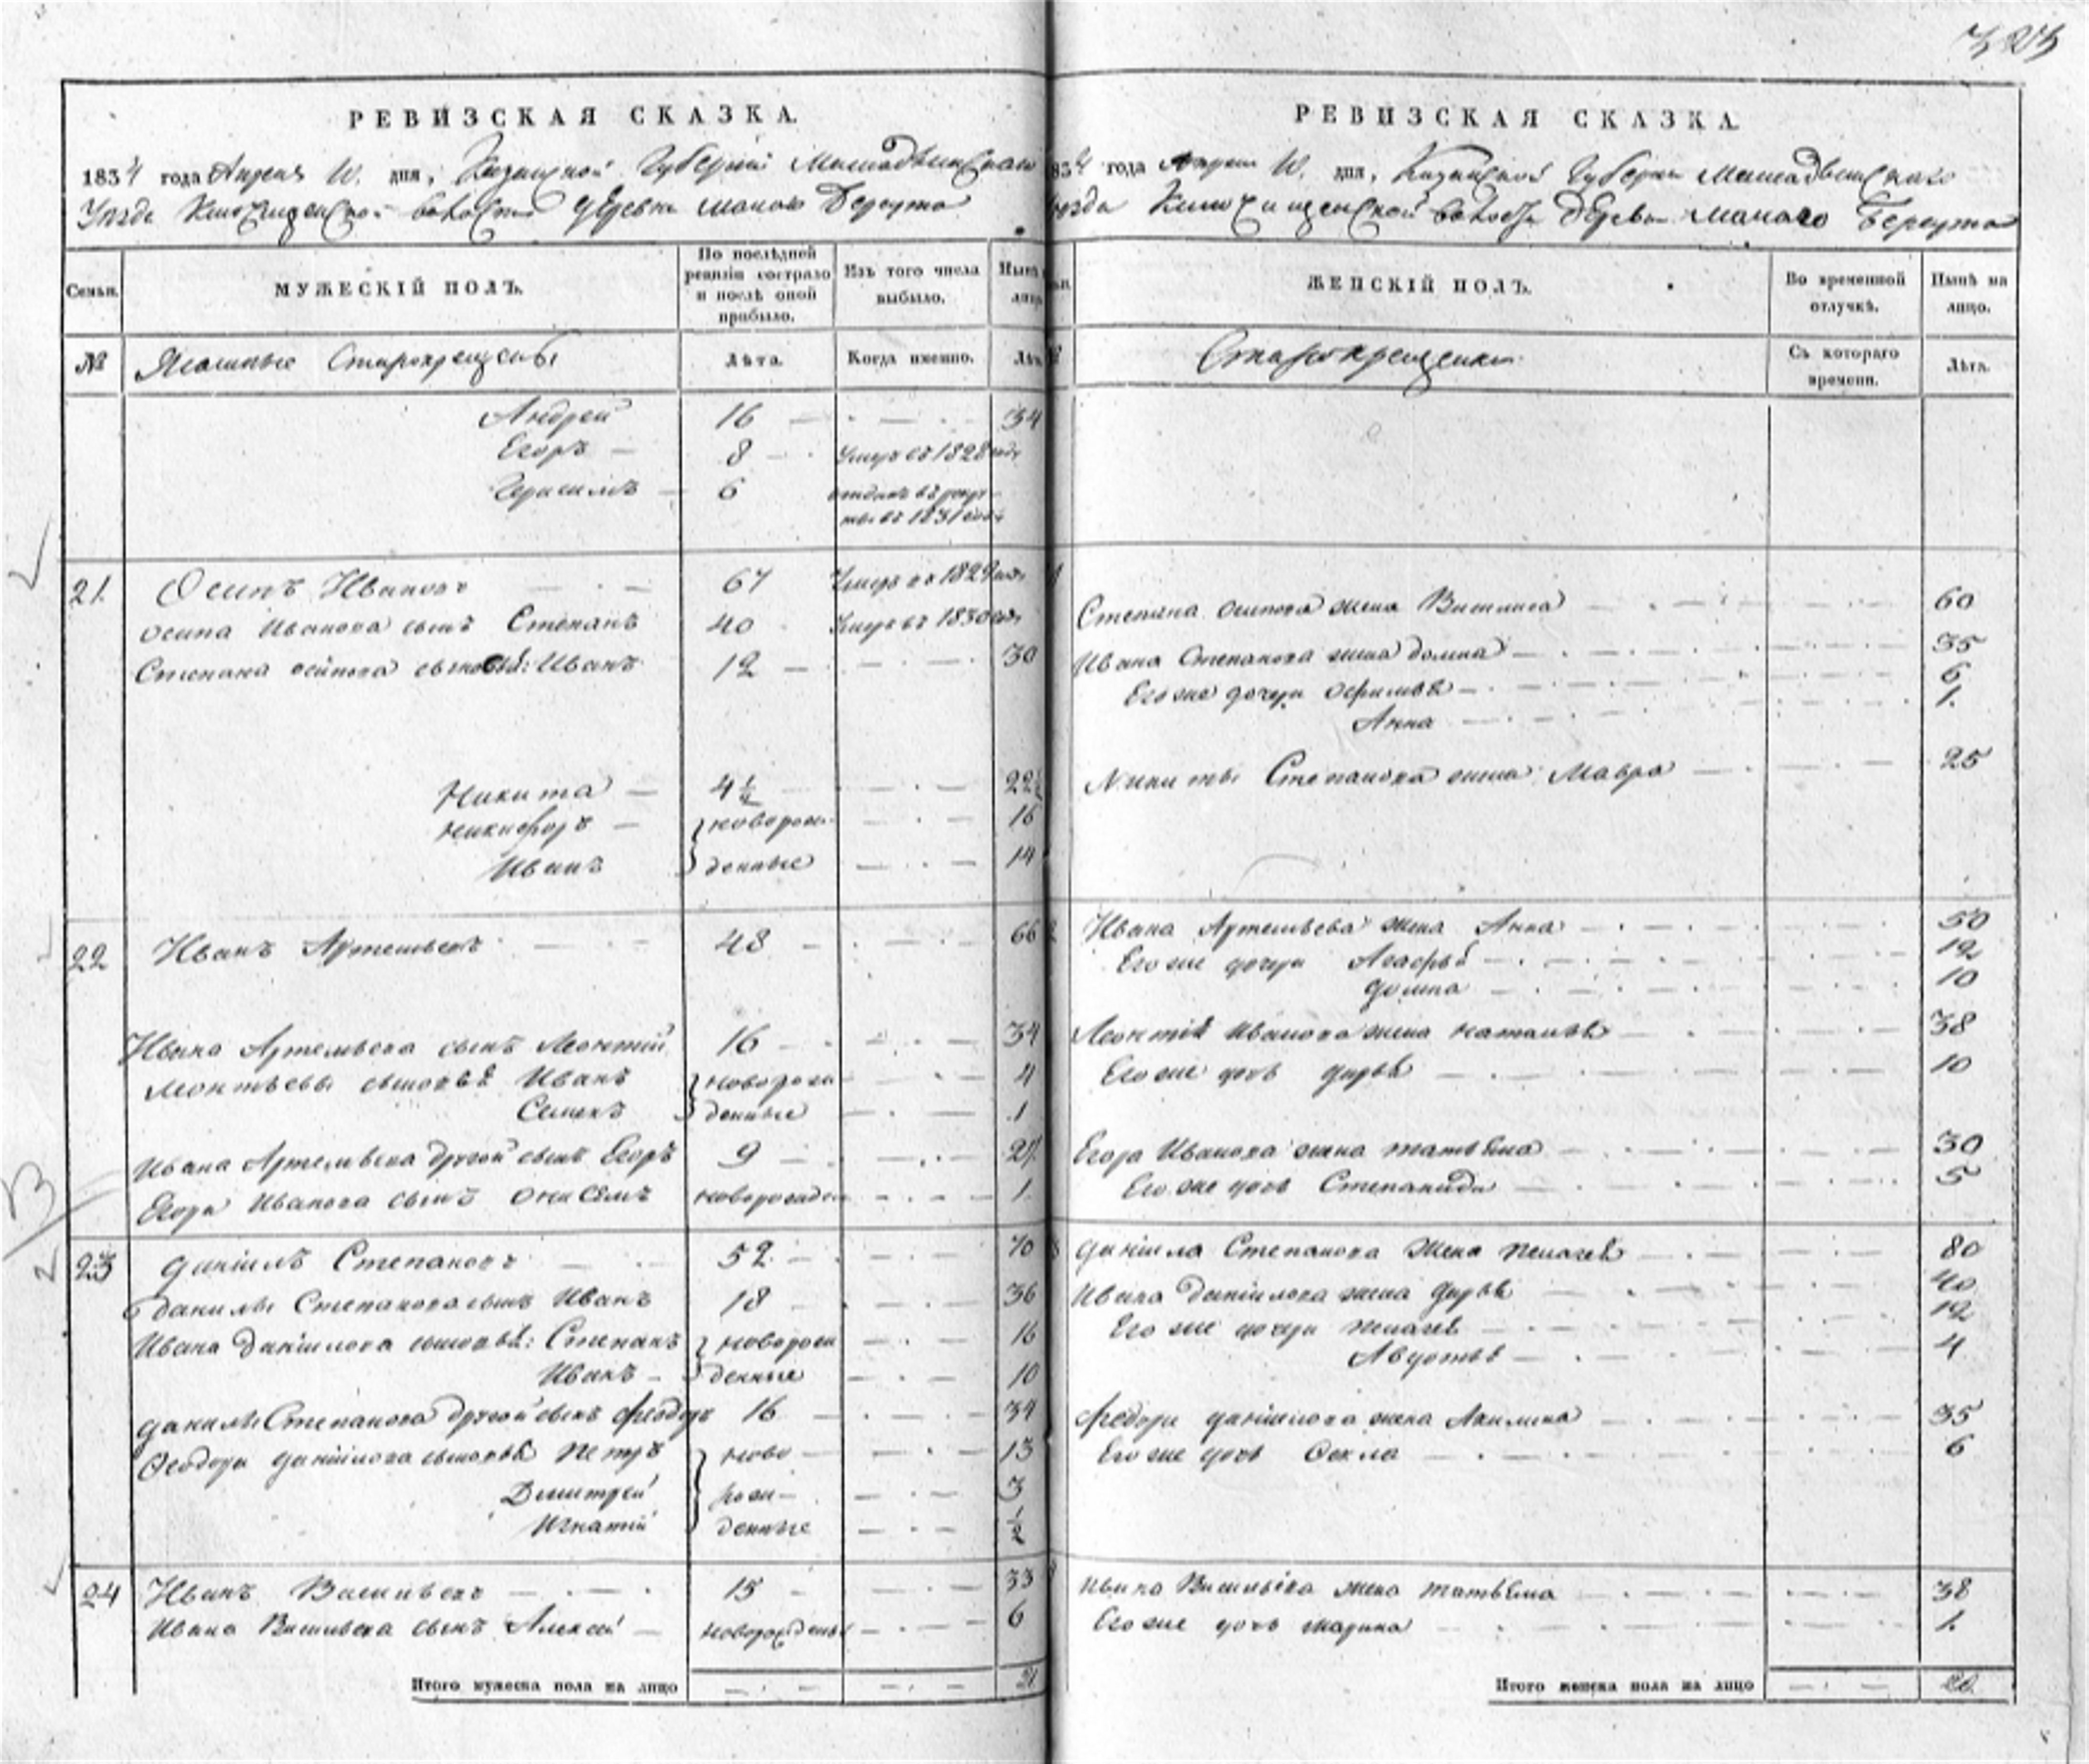 323
РЕВИЗСКАЯ СКАЗКА.
1834 года Апреля 10. дня, Казанской Губернии Мамадышскаго
Уезда волости деревни малаго
Семьи.
МУЖЕСКІЙ ПОЛЪ.
По послѣдней ревизіи состояло и послѣ оной прибыло.
Изъ того числа выбыло.
№
Ясашные Старокрещены
Лѣта.
Когда именно.
Андрей 16 34
Егоръ 8 Умеръ въ 1828 годе
Герасимъ 6 отданъ въ рекру-
ты въ 1831 годе
21 Осипъ Ивановъ 67 Умеръ въ 1829 годе
Осипа Иванова сынъ Степанъ 40 Умеръ въ 1830 годе
Степана Осипова сыновья: Иванъ 12 30
Никита 4½ 22½
Никифоръ новорож- 16
Иванъ денные 14
22 Иванъ Артемьевъ 48 66
Ивана Артемьева сынъ Леонтій 16 34
Леонтьевы сыновья Иванъ новорож 4
Семенъ денные 1
Ивана Артемьева другой сынъ Егоръ 9 27
Егора Иванова сынъ Онисемъ новорожден 1
23 Даніилъ Степановъ 52 70
Данилы Степанова сынъ Иванъ 18 36
Ивана Даніилова сыновья: Степанъ новорож 16
Иванъ денные 10
Данилы Степанова другой сынъ Феодоръ 16 34
Феодора Даніилова сыновья Петръ ново 13
Дмитрей рож- 3
Игнатій денные ½
24 Иванъ Васильевъ 15 33
Ивана Васильева сынъ Алексей новорожденый 6
Итого мужеска пола на лицо 21
РЕВИЗСКАЯ СКАЗКА.
года Апреля 10. дня, Казанской Губернии Мамадышскаго
уезда волости деревни малаго
ЖЕНСКІЙ ПОЛЪ.
Во временной отлучкѣ.
Нынѣ на лицо.
Старокрещенки
Съ котораго времени.
Лѣта.
Степана Осипова жена Василиса 60
Ивана Степанова жена Домна 35
Его же дочери Офимья 6
Анна 1.
Никиты Степанова жена Мавра 25
Ивана Артемьева жена Анна 50
Его же дочери Агафья 12
Домна 10
Леонтія Иванова жена Наталья 38
Его же дочь Дарья 10
Егора Иванова жена Татьяна 30
Его же дочь Степанида 5
Даніила Степанова жена Пелагея 80
Ивана Даніилова жена Дарья 40
Его же дочери Пелагея 12
Авдотья 4
Федора Даніилова жена Акилина 35
Его же дочь Фекла 6
Ивана Васильева жена Татьяна 38
Его же дочь Марина 1.
Итого женска пола на лицо 20